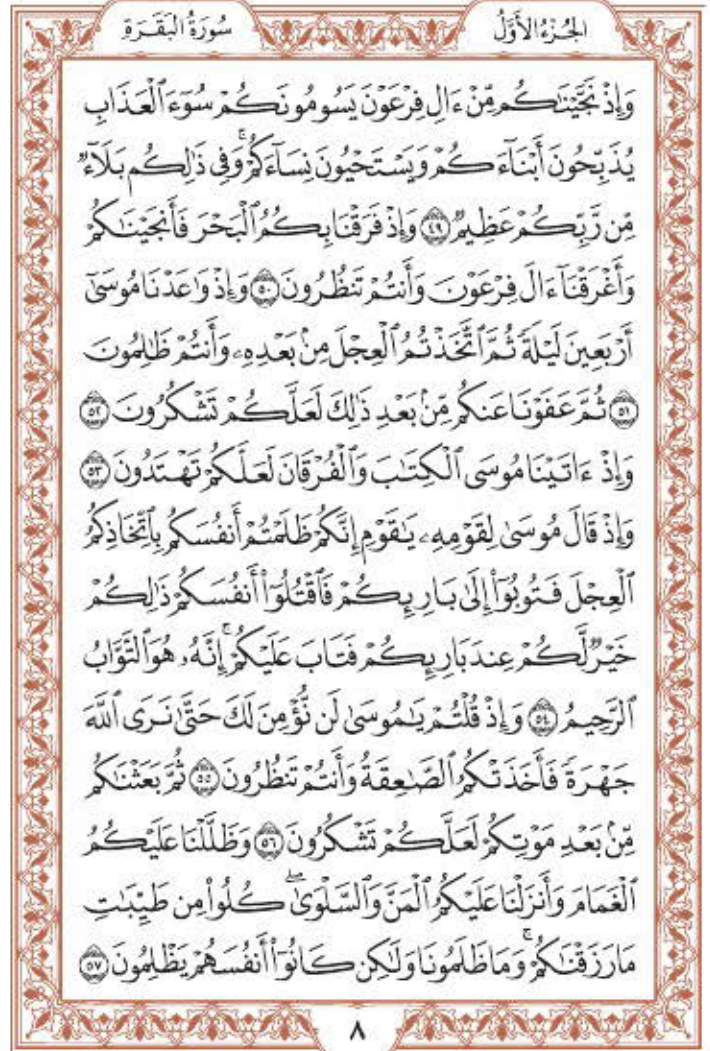 الجُزْءُ الأَوَّلُ
سُورَةُ البَقَرَةِ
وَإِذْ نَجَّيْنَٰكُم مِّنْ ءَالِ فِرْعَوْنَ يَسُومُونَكُمْ سُوٓءَ ٱلْعَذَابِ
يُذَبِّحُونَ أَبْنَآءَكُمْ وَيَسْتَحْيُونَ نِسَآءَكُمْ ۚ وَفِى ذَٰلِكُم بَلَآءٌ
مِّن رَّبِّكُمْ عَظِيمٌ ۝٤٩ وَإِذْ فَرَقْنَا بِكُمُ ٱلْبَحْرَ فَأَنجَيْنَٰكُمْ
وَأَغْرَقْنَآ ءَالَ فِرْعَوْنَ وَأَنتُمْ تَنظُرُونَ ۝٥٠ وَإِذْ وَٰعَدْنَا مُوسَىٰٓ
أَرْبَعِينَ لَيْلَةً ثُمَّ ٱتَّخَذْتُمُ ٱلْعِجْلَ مِنۢ بَعْدِهِۦ وَأَنتُمْ ظَٰلِمُونَ
۝٥١ ثُمَّ عَفَوْنَا عَنكُم مِّنۢ بَعْدِ ذَٰلِكَ لَعَلَّكُمْ تَشْكُرُونَ ۝٥٢
وَإِذْ ءَاتَيْنَا مُوسَى ٱلْكِتَٰبَ وَٱلْفُرْقَانَ لَعَلَّكُمْ تَهْتَدُونَ ۝٥٣
وَإِذْ قَالَ مُوسَىٰ لِقَوْمِهِۦ يَٰقَوْمِ إِنَّكُمْ ظَلَمْتُمْ أَنفُسَكُم بِٱتِّخَاذِكُمُ
ٱلْعِجْلَ فَتُوبُوٓا۟ إِلَىٰ بَارِئِكُمْ فَٱقْتُلُوٓا۟ أَنفُسَكُمْ ذَٰلِكُمْ
خَيْرٌ لَّكُمْ عِندَ بَارِئِكُمْ فَتَابَ عَلَيْكُمْ ۚ إِنَّهُۥ هُوَ ٱلتَّوَّابُ
ٱلرَّحِيمُ ۝٥٤ وَإِذْ قُلْتُمْ يَٰمُوسَىٰ لَن نُّؤْمِنَ لَكَ حَتَّىٰ نَرَى ٱللَّهَ
جَهْرَةً فَأَخَذَتْكُمُ ٱلصَّٰعِقَةُ وَأَنتُمْ تَنظُرُونَ ۝٥٥ ثُمَّ بَعَثْنَٰكُم
مِّنۢ بَعْدِ مَوْتِكُمْ لَعَلَّكُمْ تَشْكُرُونَ ۝٥٦ وَظَلَّلْنَا عَلَيْكُمُ
ٱلْغَمَامَ وَأَنزَلْنَا عَلَيْكُمُ ٱلْمَنَّ وَٱلسَّلْوَىٰ ۖ كُلُوا۟ مِن طَيِّبَٰتِ
مَا رَزَقْنَٰكُمْ ۚ وَمَا ظَلَمُونَا وَلَٰكِن كَانُوٓا۟ أَنفُسَهُمْ يَظْلِمُونَ ۝٥٧
٨